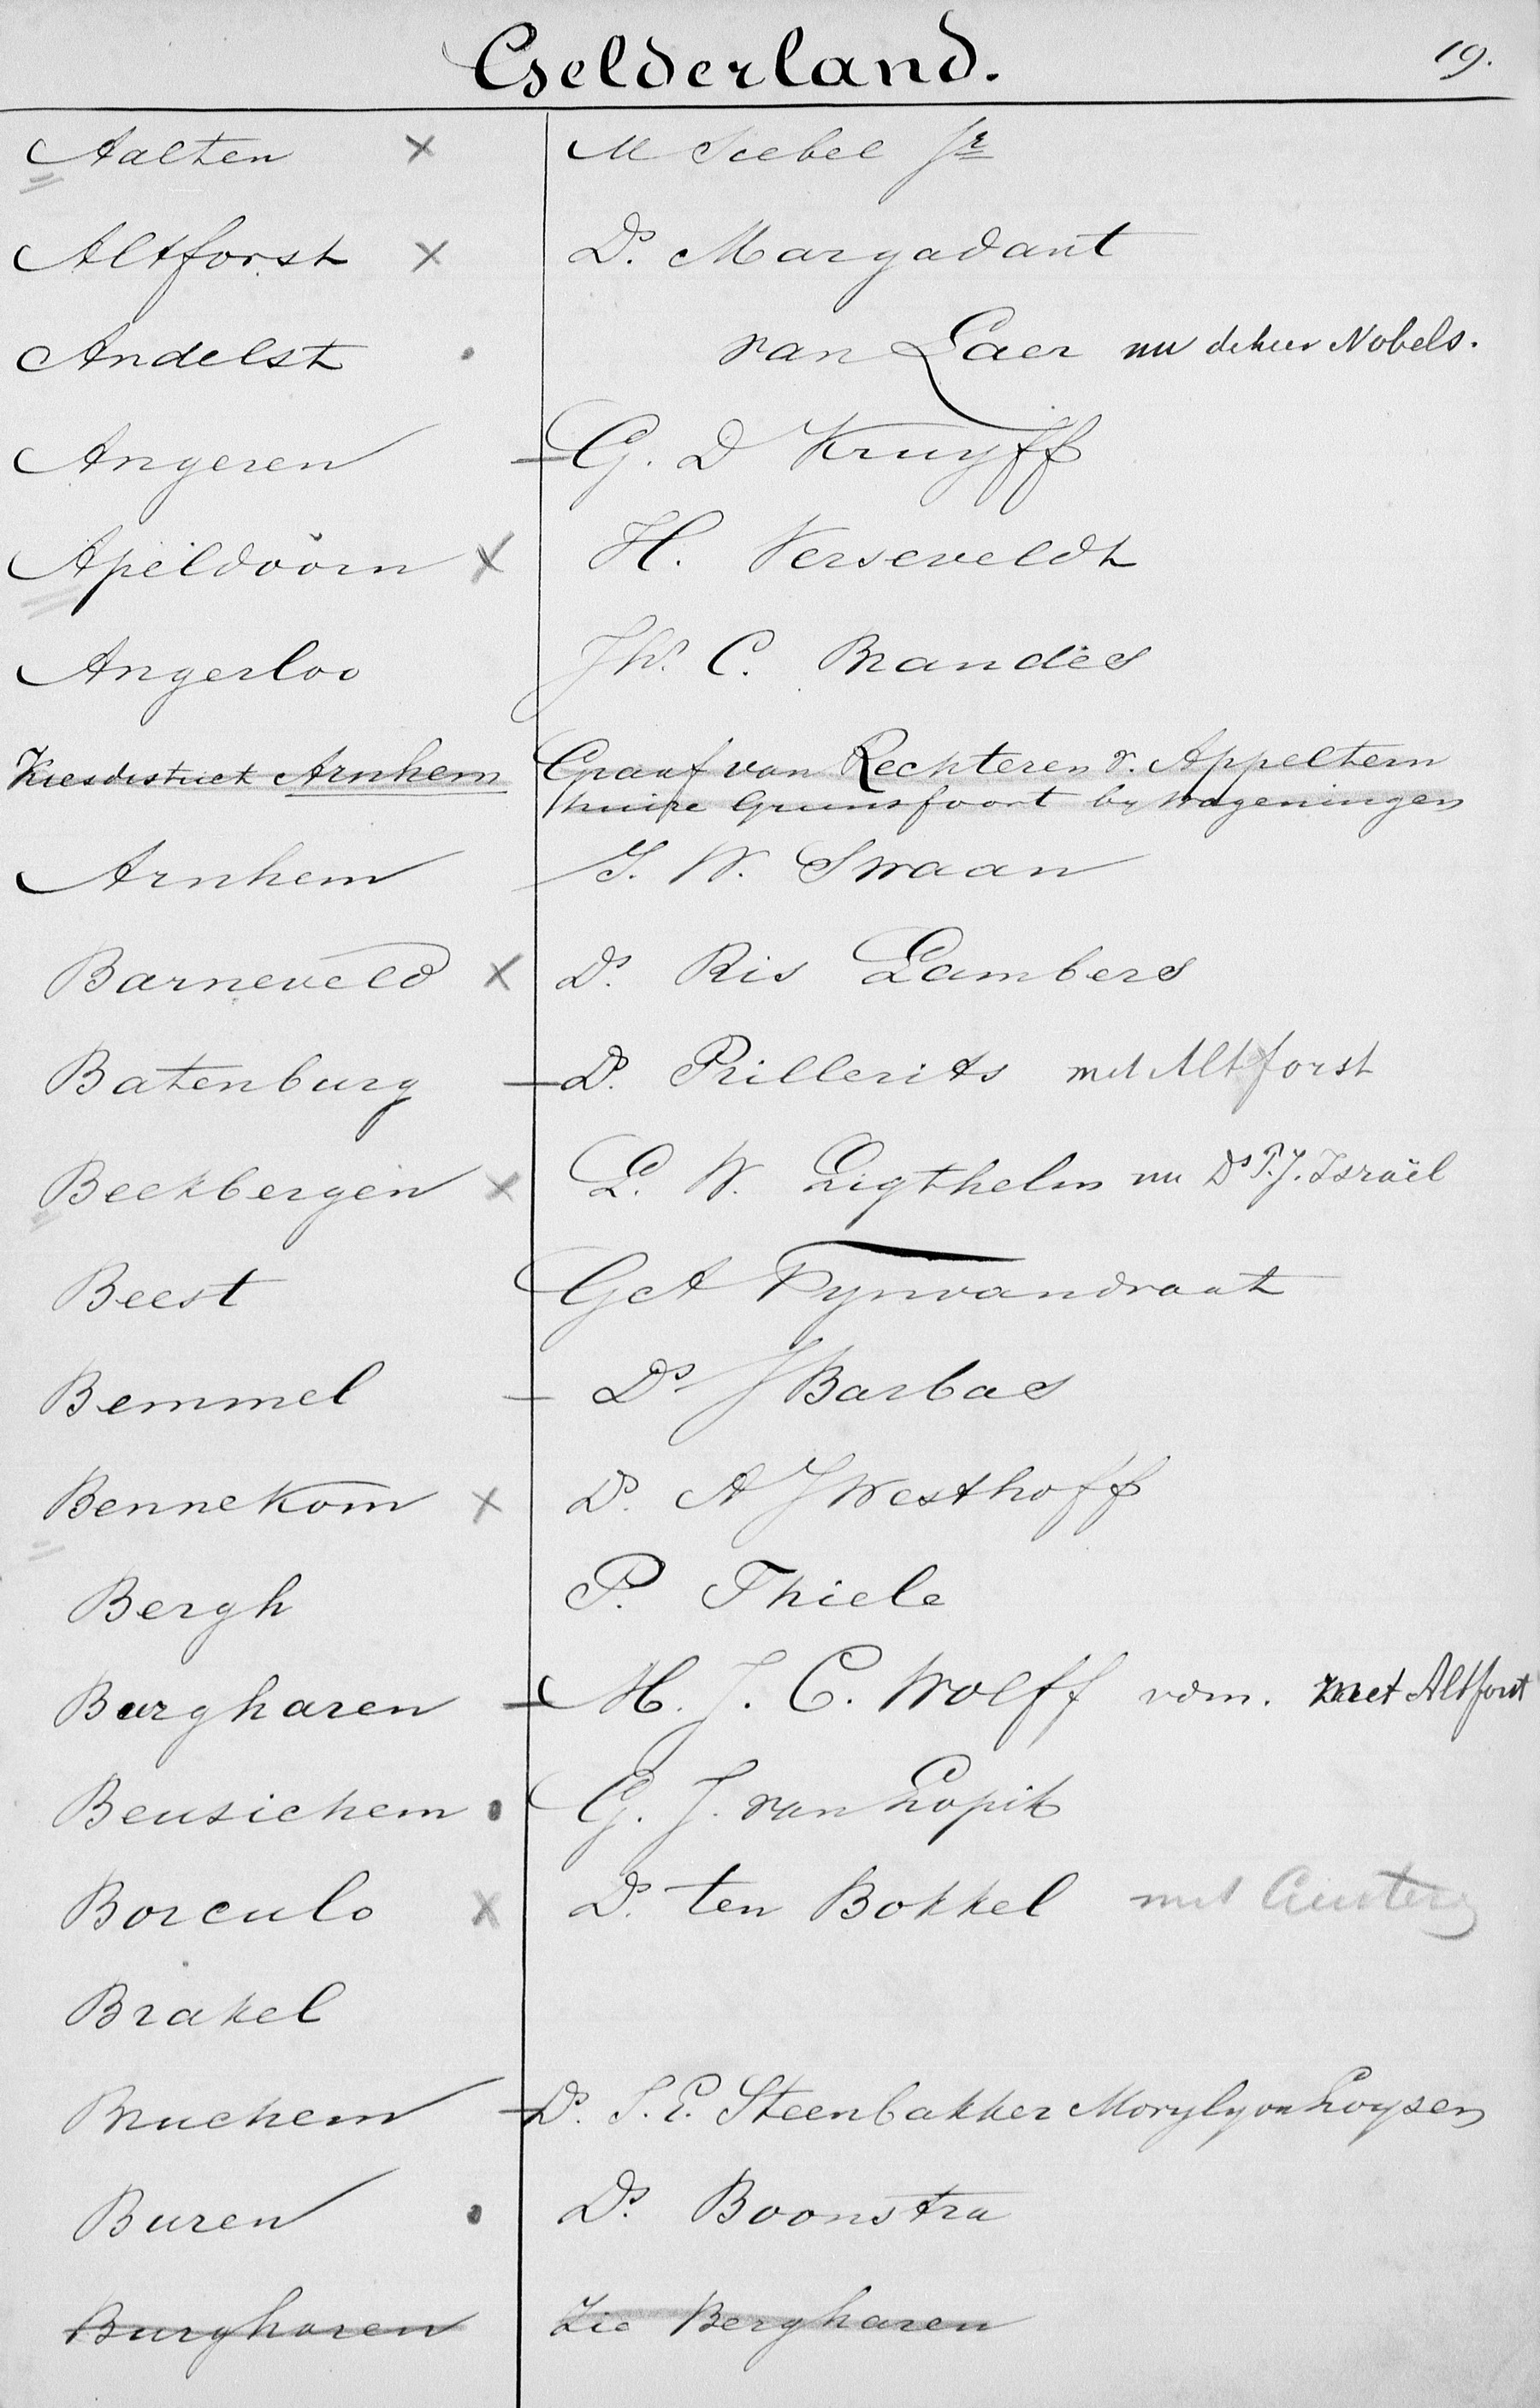 Gelderland. 19.
Aalten x M Siebel Jr
Altforst x Ds. Margadant
Andelst . van Laer nu de heer Nobels.
Angeren — G. D Kruyff
Apeldoorn x H. Verseveldt
Angerloo Jhr. C. Brandes
Kiesdistrict Arnhem Graaf van Rechteren v. Appeltern
huize Grunsfoort by Wageningen
Arnhem J. W. Swaan
Barneveld x Ds. Ris Lambers
Batenburg — Ds. Prillerits met Altforst
Beekbergen x L. W. Ligthelm nu Ds P.J. Israël
Beest G Pynvandraat
Bemmel — Ds J Barbas
Bennekom x Ds. A J Westhoff
Bergh P. Thiele
Bergharen — H. J. C. Wolff vdm. met Altforst
Beusichem . G. J. van Lopik
Borculo x Ds. ten Bokkel met
Brakel
Bruchem — Ds. S. E. Steenbakker Morylyon Loysen
Buren . Ds. Boonstra
Burgharen Zie Bergharen